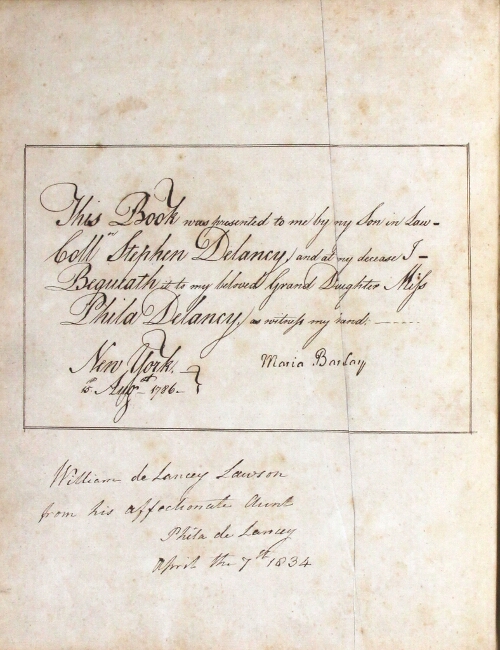 This Book was presented to me by my Son in Law-
Coll.n Stephen Delancy, and at my decease I-
Bequeath it to my beloved Grand Daughter Miss
Phila Delancy, as witness my hand.
New York.
15th Augst 1786.
Maria Barclay
William de Lancey Lawson
from his affectionate Aunt
Phila de Lancey
April the 7th 1834